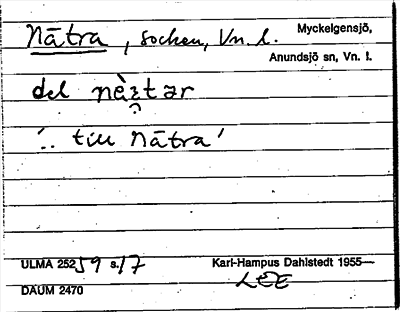 Nätra, socken, Vn. l. Myckelgensjö,
Anundsjö sn, Vn. l.
del
'.. till Nätra'
ULMA 25259 s. 17 Karl-Hampus Dahlstedt 1955—
DAUM 2470